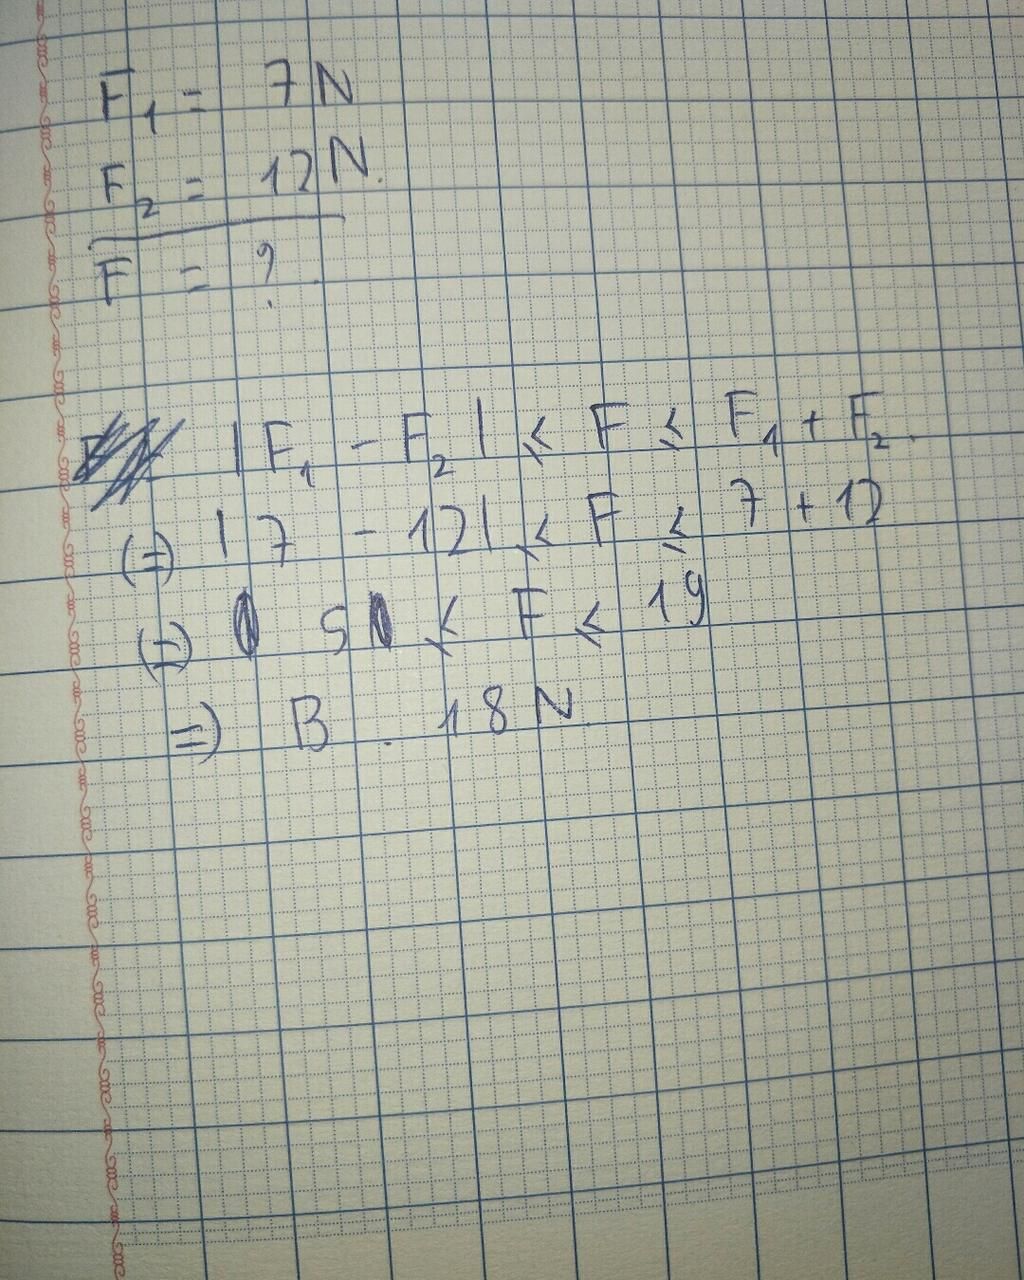 F₁ = 7N
F₂ = 12N.
F = ?
|F₁ - F₂| ≤ F ≤ F₁ + F₂.
(=) |7 - 12| ≤ F ≤ 7 + 12
(=) 5 ≤ F ≤ 19
=) B. 18N